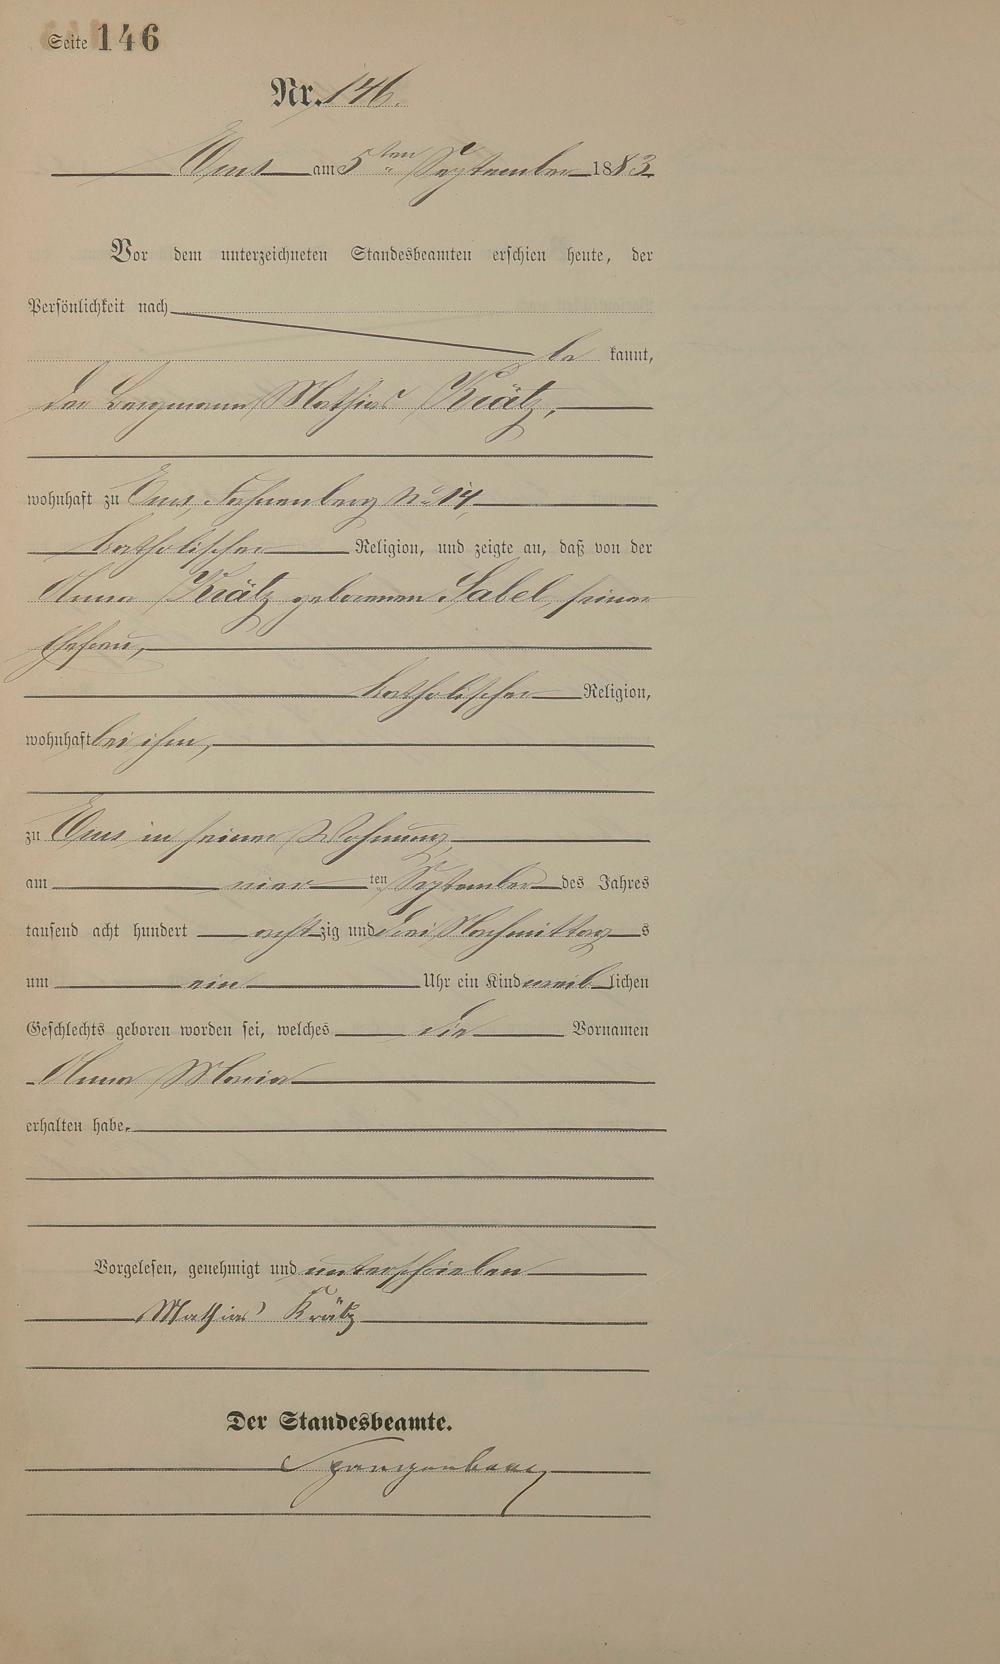 Seite 146
Nr. 146.
Ems am 5ten September 1883.
Vor dem unterzeichneten Standesbeamten erschien heute, der
Persönlichkeit nach
be kannt,
der Bergmann Mathias Krätz,
wohnhaft zu Ems, Fahnenberg No 14,
katholischer Religion, und zeigte an, daß von der
Anna Krätz geborenen Sabel, seiner
Ehefrau,
katholischer Religion,
wohnhaft bei ihm,
zu Ems in seiner Wohnung
am vier ten September des Jahres
tausend acht hundert acht zig und drei Nachmittag s
um ein Uhr ein Kind weib lichen
Geschlechts geboren worden sei, welches die Vornamen
Anna Maria
erhalten habe.
Vorgelesen, genehmigt und unterschrieben
Mathias Krätz
Der Standesbeamte.
Spangenberg